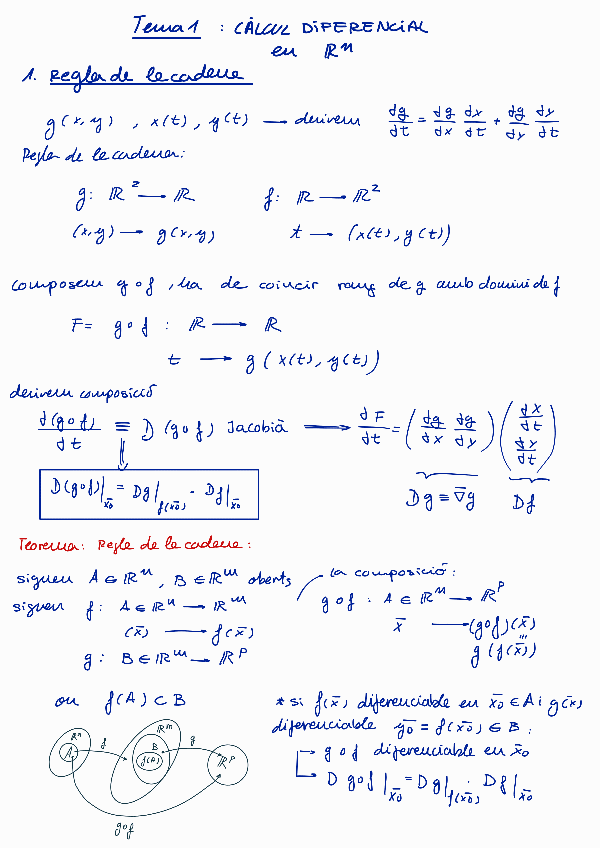 Tema 1 : CÀLCUL DIFERENCIAL
en ℝⁿ
1. Regla de la cadena
g(x,y) , x(t) , y(t) → derivem dg/dt = dg/dx dx/dt + dg/dy dy/dt
Regla de la cadena:
g: ℝ² → ℝ f: ℝ → ℝ²
(x,y) → g(x,y) t → (x(t), y(t))
composem g∘f , ha de coincir rang de g amb domini de f
F = g∘f : ℝ → ℝ
t → g(x(t), y(t))
derivem composició
d(g∘f)/dt ≡ D(g∘f) Jacobià → dF/dt = (dg/dx dg/dy) (dx/dt dx/dt)
D(g∘f)|x̄0 = Dg|f(x̄0) · Df|x̄0
Dg ≡ ∇̄g Df
Teorema: Regla de la cadena:
siguen A ∈ ℝⁿ, B ∈ ℝᵐ oberts
siguen f: A ∈ ℝⁿ → ℝᵐ
(x̄) → f(x̄)
g: B ∈ ℝᵐ → ℝᵖ
on f(A) ⊂ B
la composició:
g∘f : A ∈ ℝⁿ → ℝᵖ
x̄ → (g∘f)(x̄)
g(f(x̄))
* si f(x̄) diferenciable en x̄0 ∈ A i g(x̄)
diferenciable ȳ0 = f(x̄0) ∈ B :
→ g∘f diferenciable en x̄0
→ D g∘f|x̄0 = Dg|f(x̄0) · Df|x̄0
ℝⁿ A f ℝᵐ B f(A) g ℝᵖ
g∘f